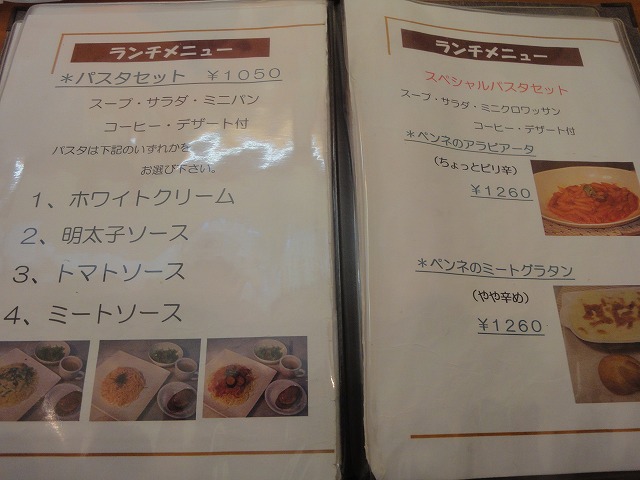 ランチメニュー
＊パスタセット ￥１０５０
スープ・サラダ・ミニパン
コーヒー・デザート付
パスタは下記のいずれかを
お選び下さい。
１、ホワイトクリーム
２、明太子ソース
３、トマトソース
４、ミートソース
ランチメニュー
スペシャルパスタセット
スープ・サラダ・ミニクロワッサン
コーヒー・デザート付
＊ペンネのアラビアータ
（ちょっとピリ辛）
￥１２６０
＊ペンネのミートグラタン
（やや辛め）
￥１２６０